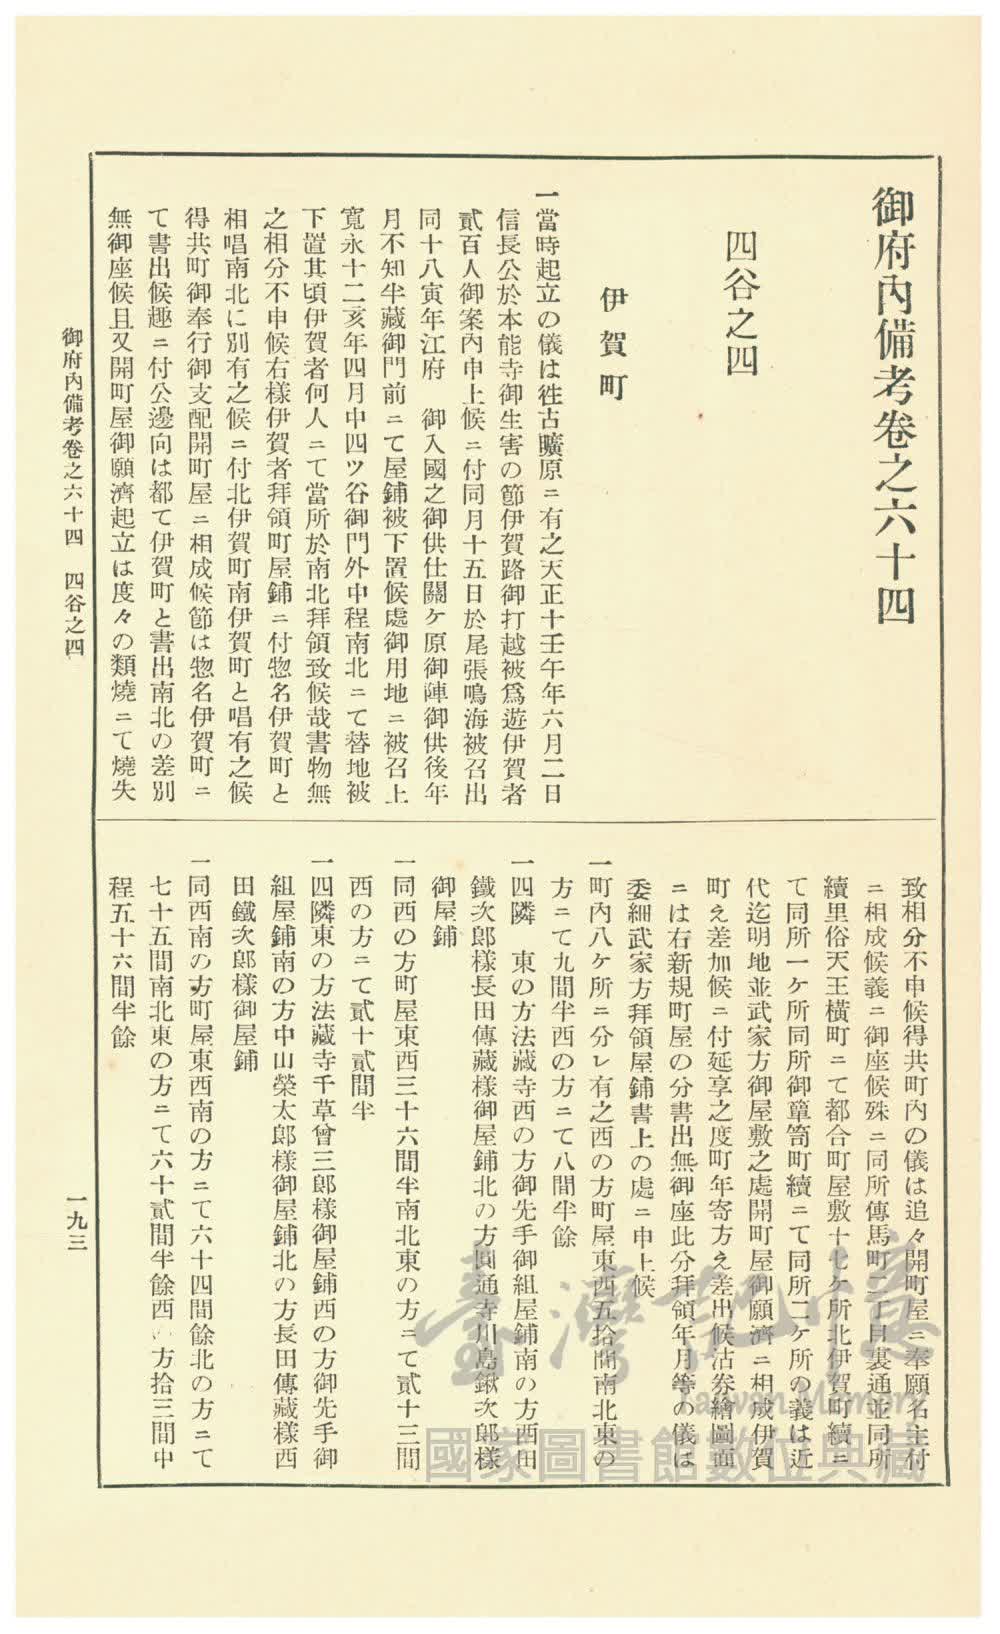 御府內備考卷之六十四
四谷之四
伊賀町
一當時起立の儀は徃古曠原ニ有之天正十壬午年六月二日
信長公於本能寺御生害の節伊賀路御打越被爲遊伊賀者
貳百人御案內申上候ニ付同月十五日於尾張鳴海被召出
同十八寅年江府　御入國之御供仕關ケ原御陣御供後年
月不知半藏御門前ニて屋鋪被下置候處御用地ニ被召上
寬永十二亥年四月中四ツ谷御門外中程南北ニて替地被
下置其頃伊賀者何人ニて當所於南北拜領致候哉書物無
之相分不申候右樣伊賀者拜領町屋鋪ニ付惣名伊賀町と
相唱南北に別有之候ニ付北伊賀町南伊賀町と唱有之候
得共町御奉行御支配開町屋ニ相成候節は惣名伊賀町ニ
て書出候趣ニ付公邊向は都て伊賀町と書出南北の差別
無御座候且又開町屋御願濟起立は度々の類燒ニて燒失
致相分不申候得共町內の儀は追々開町屋ニ奉願名主付
ニ相成候義ニ御座候殊ニ同所傳馬町二丁目裏通並同所
續里俗天王橫町ニて都合町屋敷十七ケ所北伊賀町續ニ
て同所一ケ所同所御簞笥町續ニて同所二ケ所の義は近
代迄明地並武家方御屋敷之處開町屋御願濟ニ相成伊賀
町え差加候ニ付延享之度町年寄方え差出候沽券繪圖面
ニは右新規町屋の分書出無御座此分拜領年月等の儀は
委細武家方拜領屋鋪書上の處ニ申上候
一町內八ケ所ニ分レ有之西の方町屋東西五拾間南北東の
方ニて九間半西の方ニて八間半餘
一四隣　東の方法藏寺西の方御先手御組屋鋪南の方西田
鐵次郞樣長田傳藏樣御屋鋪北の方圓通寺川島鍬次郞樣
御屋鋪
一同西の方町屋東西三十六間半南北東の方ニて貳十三間
西の方ニて貳十貳間半
一四隣東の方法藏寺千草曾三郞樣御屋鋪西の方御先手御
組屋鋪南の方中山榮太郞樣御屋鋪北の方長田傳藏樣西
田鐵次郞樣御屋鋪
一同西南の方町屋東西南の方ニて六十四間餘北の方ニて
七十五間南北東の方ニて六十貳間半餘西の方拾三間中
程五十六間半餘
御府內備考卷之六十四　四谷之四
一九三
臺灣記憶
Taiwan Memory
國家圖書館數位典藏